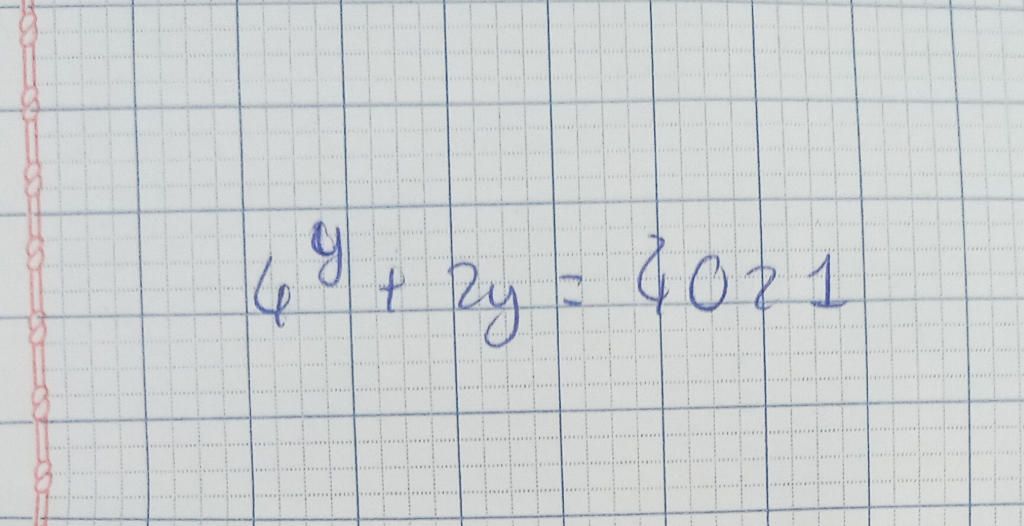 4^y + 2y = 4021